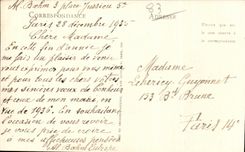 M. Bohm 5 place Jussieu 5e
CORRESPONDANCE
Paris 28 décembre 1934
Chère Madame
En cette fin d'année je
me fais un plaisir de venir
vous exprimer pour vous même
et pour tous les chers vôtres
mes sincères vœux de bonheur
et ceux de mon mari en
vue de 1935. En souhaitant
l'occasion de vous revoir
je vous prie de croire
à mes affectueuses pensées
M. Bohm
Madame
Guyonnet
123 Bd Brune
Paris 14e